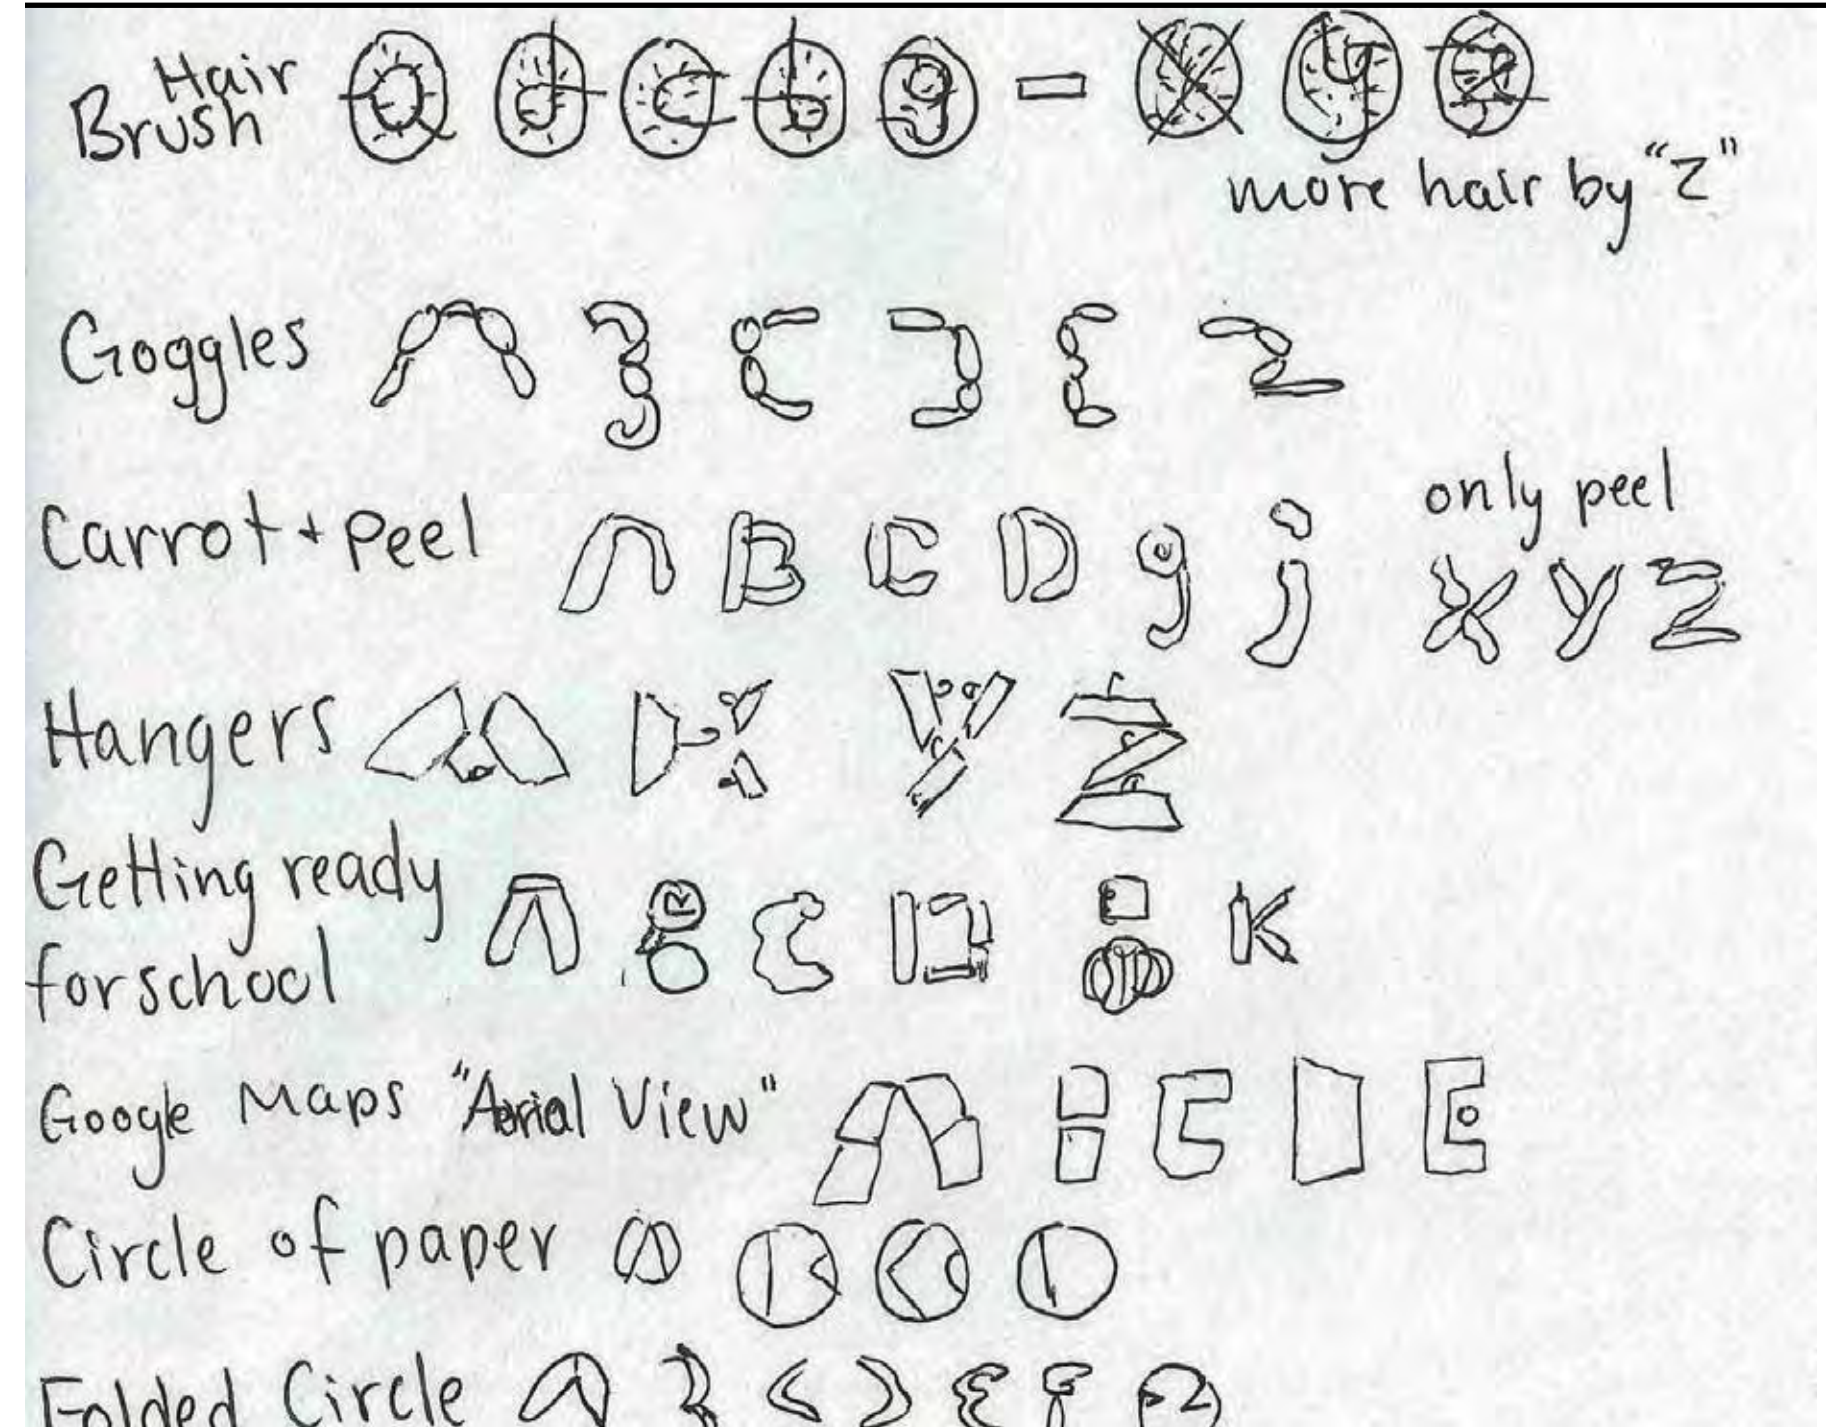 Hair
Brush a d c b g - X y z
more hair by "Z"
Goggles A B C D E Z
Carrot + Peel A B C D g j
only peel
X Y Z
Hangers A K Y Z
Getting ready
for school A B C D i K
Google Maps "Aerial View" A B C D E
Circle of paper A B C D
Folded Circle A B C D E F Z